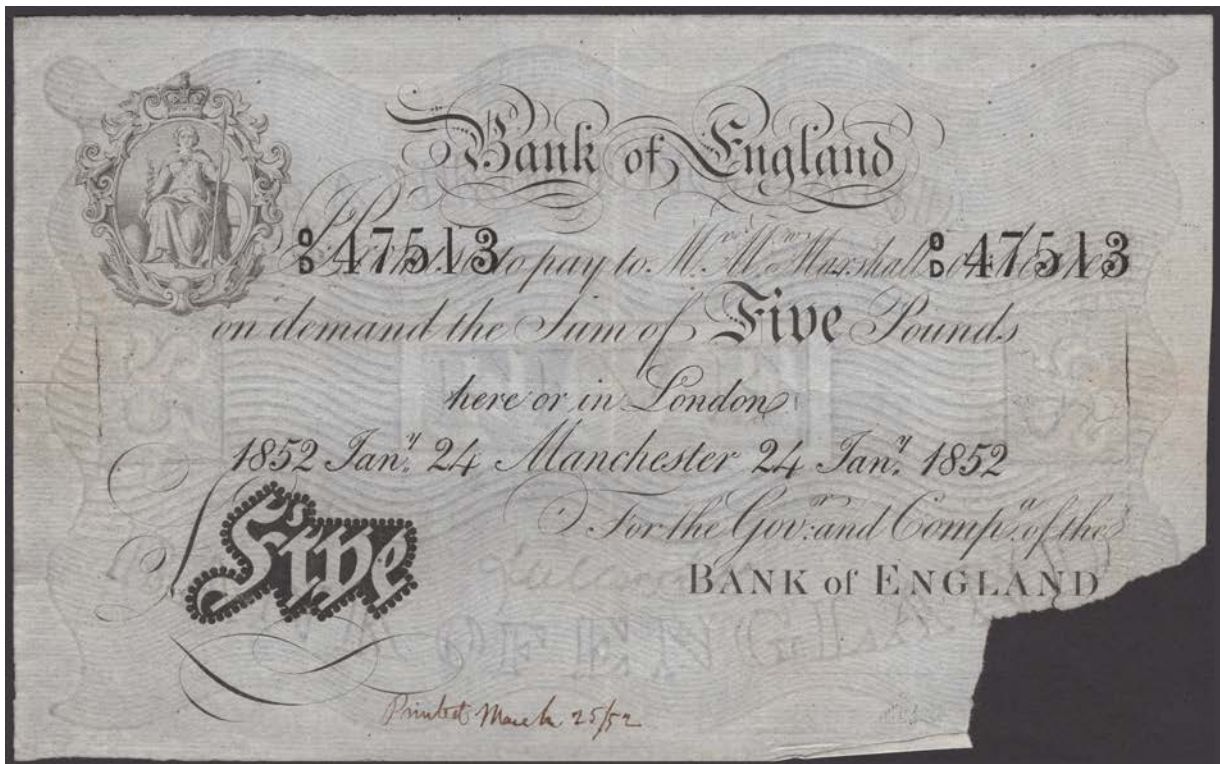 Bank of England
O/D 47513 to pay to Mr. Mw. Marshall O/D 47513
on demand the Sum of Five Pounds
here or in London
1852 Jany. 24 Manchester 24 Jany. 1852
For the Govr. and Compa. of the
BANK of ENGLAND
Five
Printed March 25/52